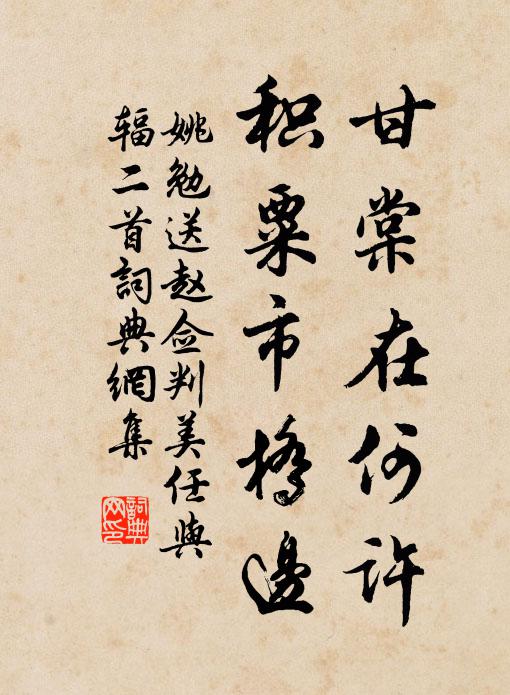 甘棠在何许
积粟市桥邊
姚勉送赵佥判美任與
辐二首詞典網集
詞典
网印